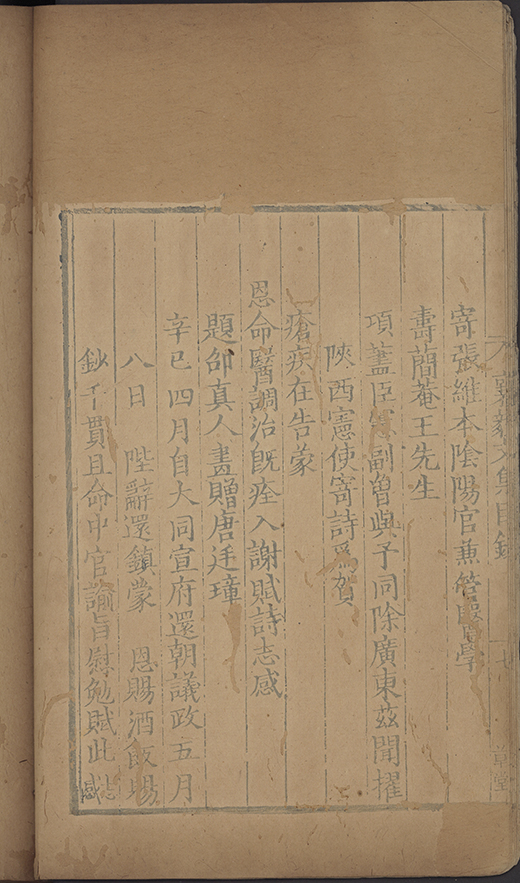 寄張維本陰陽官兼管醫學
壽蕳菴王先生
項藎臣憲副曾與予同除廣東茲聞擢
陝西憲使寄詩爲賀
瘡疾在告蒙
恩命醫調治既痊入謝賦詩志感
題邵真人畫贈唐廷瑋
辛巳四月自大同宣府還朝議政五月
八日 陛辭還鎮蒙 恩賜酒飯場
鈔千貫且命中官諭旨慰勉賦此志感
襄毅文集目錄
七
草堂